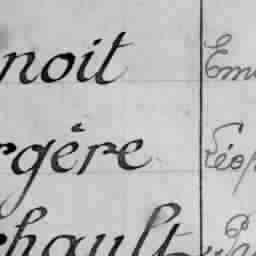 noit Em
rgère Léop
chault